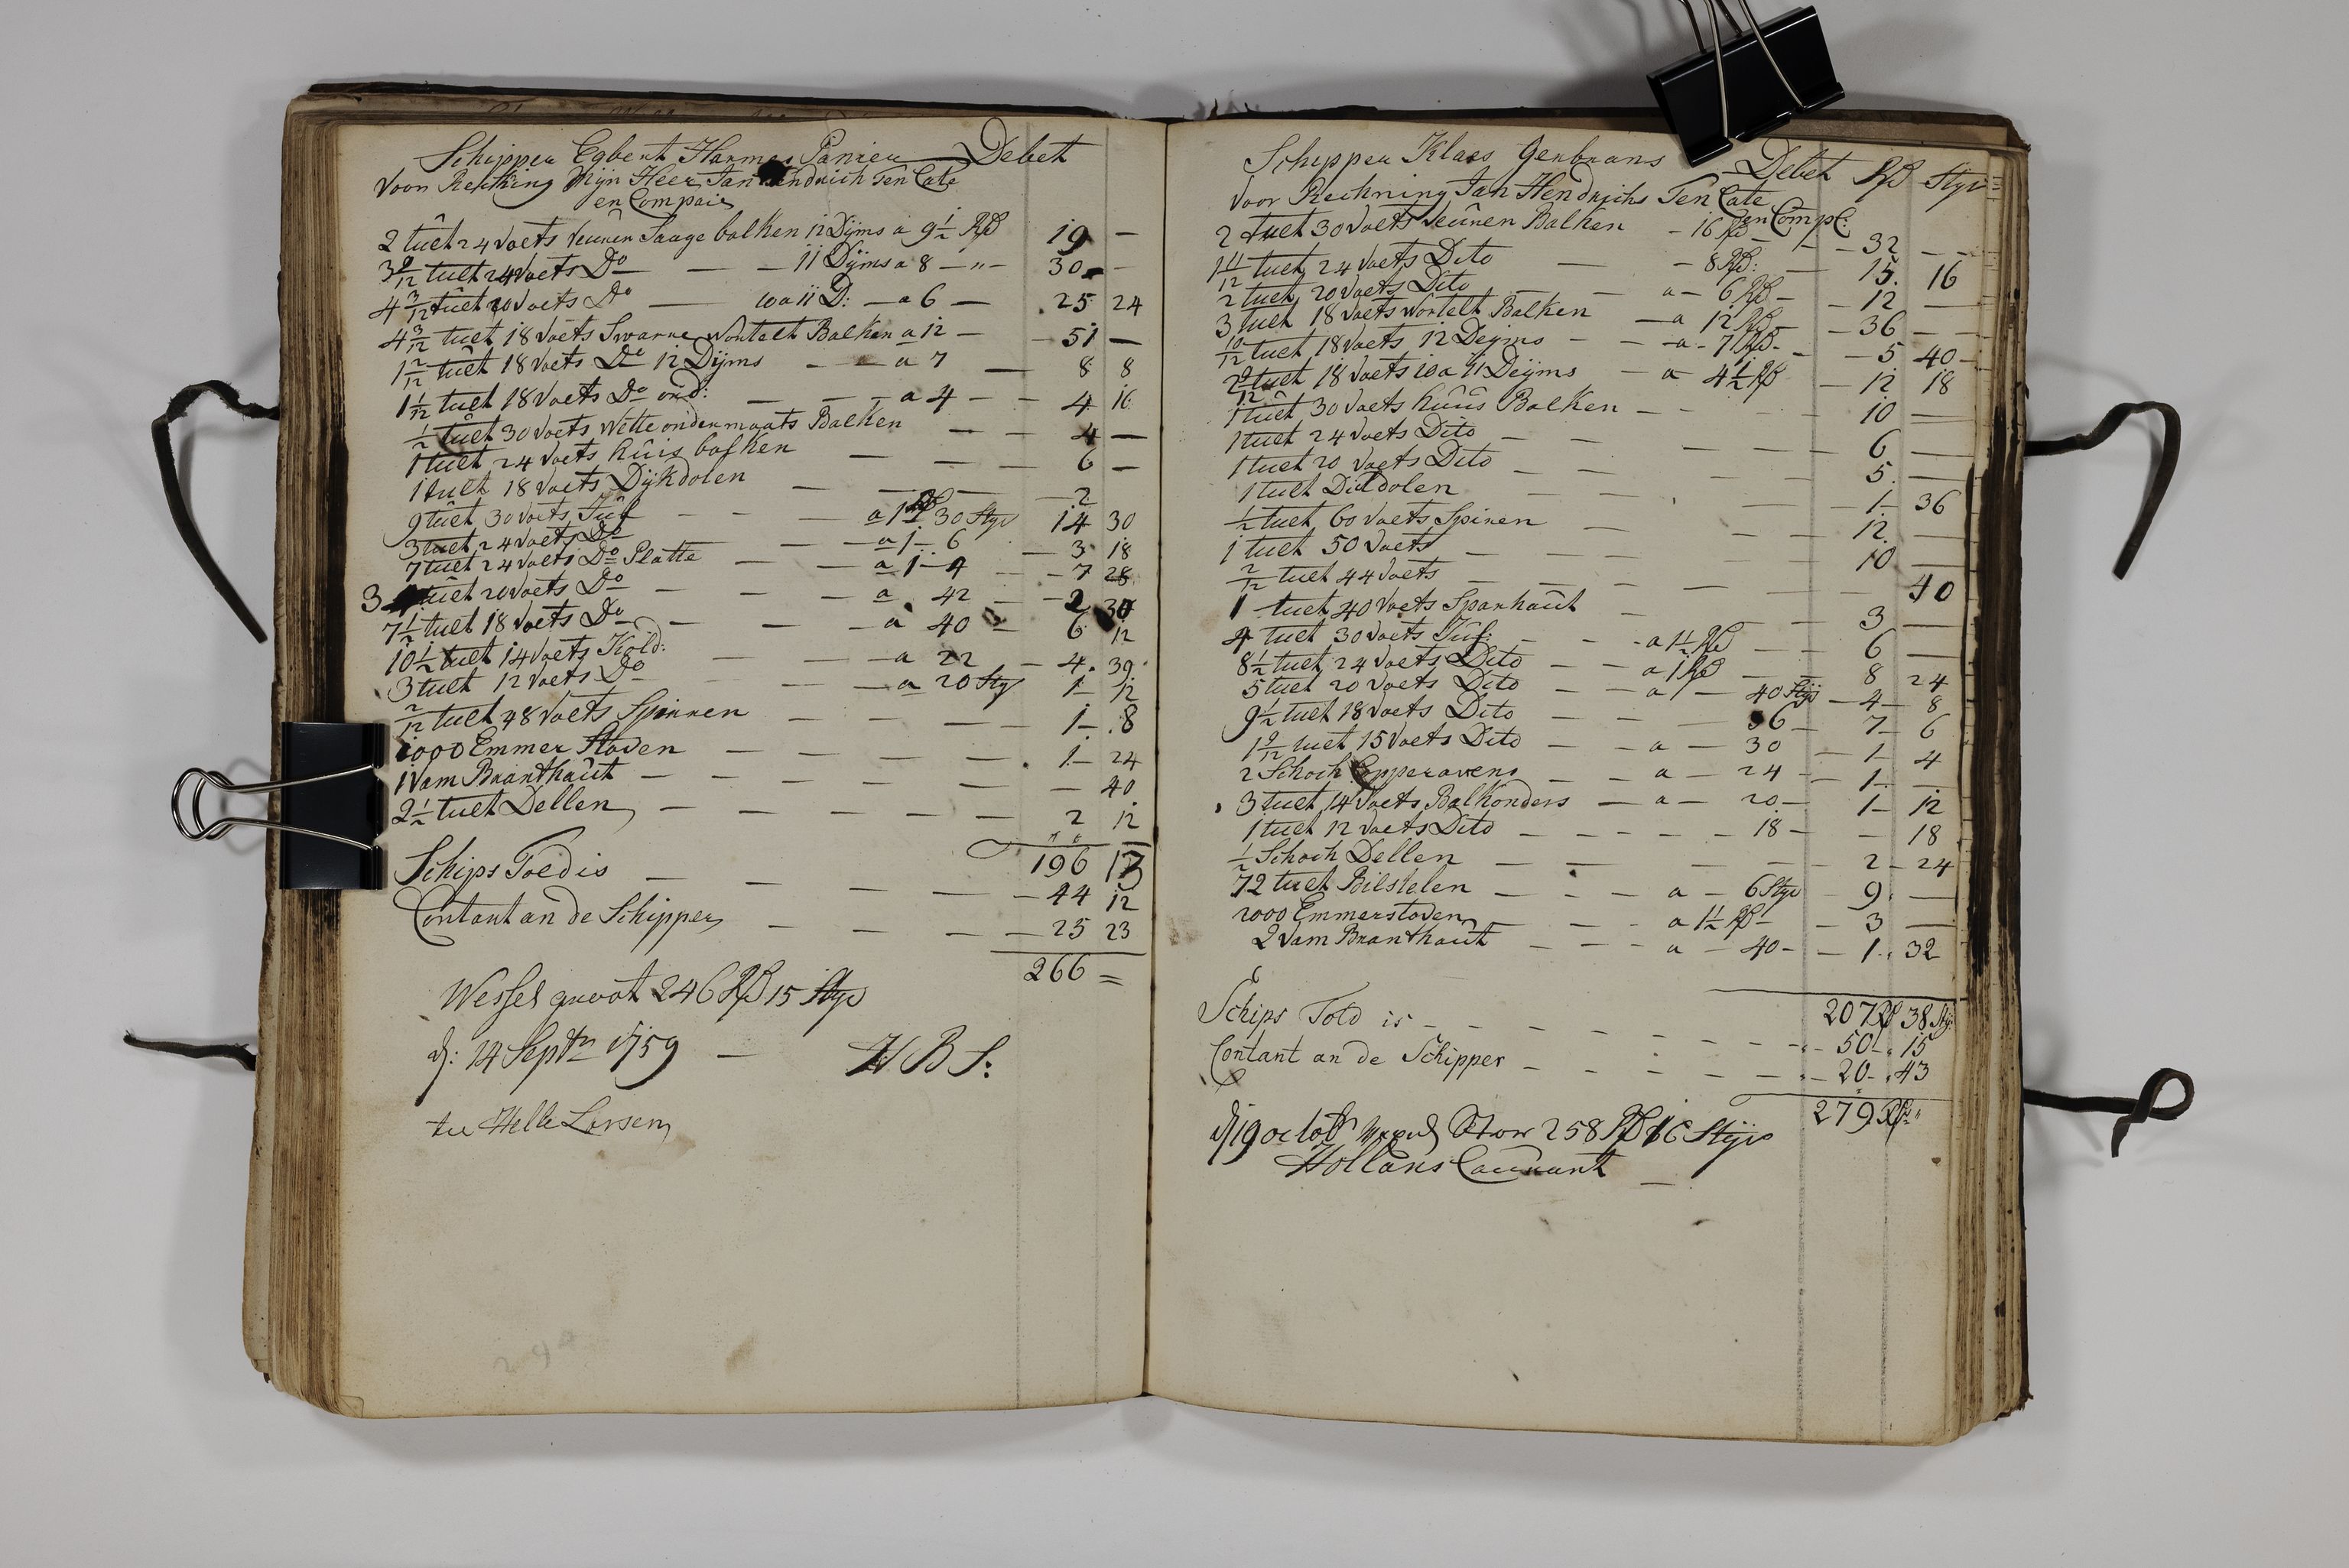 Schipper Egbert Harmes Panier Debet
Voor Rekking Mijn Heer Jan Hendrich Ten Cate
en Compais
2 tuet 24 Voets Veuren Saage balken 12 Dijms a 9 1/2 RD 19 —
3 9/12 tuet 24 Voets Do — — 11 Dijms a 8 — „ — 30 —
4 3/12 tuet 20 Voets Do — 10 a 11 D: — a 6 — 25 24
4 3/12 tuet 18 Voets Swarne Wortelt Balken a 12 — 51 —
1 2/12 tuet 18 Voets Do 12 Dijms — — a 7 — 8 8
1 1/12 tuet 18 Voets Do ond: — — a 4 — 4 16
1/2 tuet 30 Voets Witte ondermaats Balken — — 4 —
1 tuet 24 Voets huis balken — — — 6 —
1 tuet 18 Voets Dijkdolen — — — 2
9 tuet 30 Voets Juf — — — a 1 — 30 Styv 14 30
3 tuet 24 Voets Do — — a 1 — 6 — 3 18
7 tuet 24 Voets Do Platte — — a 1 — 4 — 7 28
3 tuet 20 Voets Do — — — a 42 — 2 30
7 1/2 tuet 18 Voets Do — — — a 40 — 6 12
10 1/2 tuet 14 Voets Kold: — — a 22 — 4 39
3 tuet 12 Voets Do — — — a 20 Sty 1 12
2/12 tuet 48 Voets Spinnen — — — — 1 — 8
1000 Emmer Staven — — — — 1 — 24
1 Vam Branthaut — — — — — 40
2 1/2 tuet Dellen — — — — 2 12
196 13
Schips Toed is — — — — 44 12
Contant an de Schipper — — — — 25 23
266 =
Wessel groot 246 RD 15 Styv
d: 14 Septbr 1759 — H B S:
te Helle Larsen
Schipper Klaes Gerbrans Debet RD Styv
Voor Rechning Jan Hendrichs Ten Cate
en Comp:
2 tuet 30 Voets Veuren Balken — 16 RD — 32 —
1 11/12 tuet 24 Voets Dito — — 8 RD: — 15 16
2 tuet 20 Voets Dito — — a — 6 RD — 12 —
3 tuet 18 Voets Wortelt Balken — a 12 RD — 36 —
10/12 tuet 18 Voets 12 Deyms — — a — 7 RD — 5 40
2 9/12 tuet 18 Voets 10 a 11 Deyms — a 4 1/2 RD — 12 18
1 tuet 30 Voets huus Balken — — — 10 —
1 tuet 24 Voets Dito — — — — 6 —
1 tuet 20 Voets Dito — — — — 5 —
1 tuet Dildolen — — — — 1 — 36
1/2 tuet 60 Voets Spiren — — — 12 —
1 tuet 50 Voets — — — — 10 —
2/12 tuet 44 Voets — — — — 40
1 tuet 40 Voets Sparhaut — — — 3 —
4 tuet 30 Voets Juf: — — a 1 1/2 RD — 6 —
8 1/2 tuet 24 Voets Dito — — a 1 RD — 8 24
5 tuet 20 Voets Dito — — a — 40 Stÿv — 4 — 8
9 1/2 tuet 18 Voets Dito — — — 36 — 7 — 6
1 9/12 tuet 15 Voets Dito — — a — 30 — 1 — 4
2 Schock — — a — 24 — 1 —
3 tuet 14 Voets Balkonders — a — 20 — 1 — 12
1 tuet 12 Voets Dito — — — — 18 — — 18
1/2 Schoch Dellen — — — — 2 — 24
72 tuet Bilstelen — — — a — 6 Styv 9 —
2000 Emmerstaven — — a 1 1/2 RD — 3 —
2 Vam Branthaut — — — a — 40 — 1 — 32
207 RD 38 Sty
Schips Told is — — — — 50 — 15
Contant an de Schipper — — — — 20 — 43
279 RD
d 19 octobr 258 RD 16 Stijv
Hollans Caurant —